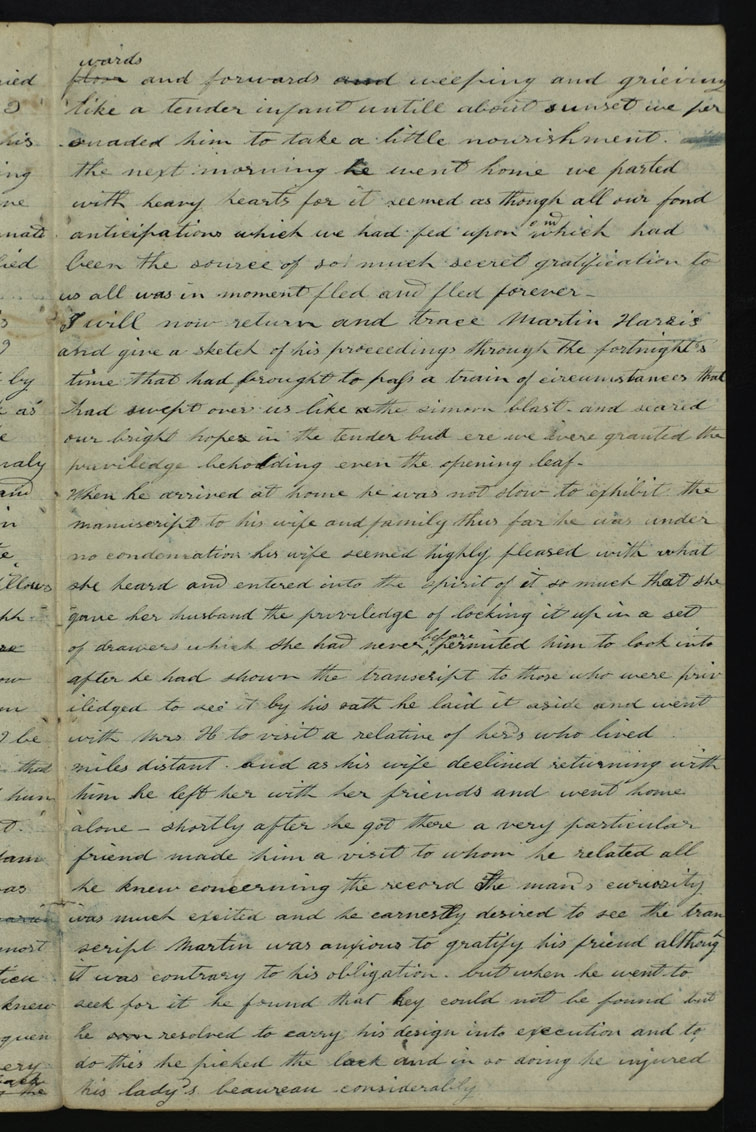 ried
his
ing
ne
nate
ried
by
as
and
in
te
illows
ph
ow
be
that
hum
t.
was
most
knew
quen
ery
wards
and forwards and weeping and grieving
like a tender infant untill about sunset we per
suaded him to take a little nourishment.
the next morning he went home we parted
with heavy hearts for it seemed as though all our fond
anticipations which we had fed upon and which had
been the source of so much secret gratification to
us all was in moment fled and fled forever-
I will now return and trace Martin Harris
and give a sketch of his proceedings through the fortnight's
time that had brought to pass a train of circumstances that
had swept over us like the simoon blast. and seared
our bright hopes in the tender bud ere we were granted the
priviledge beholding even the opening leaf-
When he arrived at home he was not slow to exhibit the
manuscript to his wife and family thus far he was under
no condemnation his wife seemed highly pleased with what
she heard and entered into the spirit of it so much that she
gave her husband the priviledge of locking it up in a set
of drawers which she had never before permited him to look into
after he had shown the transcript to those who were priv
iledged to see it by his oath he laid it aside and went
with Mrs H to visit a relative of hers who lived
miles distant. but as his wife declined returning with
him he left her with her friends and went home
alone- shortly after he got there a very particular
friend made him a visit to whom he related all
he knew concerning the record The man's curiosity
was much excited and he earnestly desired to see the tran
script Martin was anxious to gratify his friend although
it was contrary to his obligation. but when he went to
seek for it he found that key could not be found but
he soon resolved to carry his design into execution and to
do this he picked the lock and in so doing he injured
his lady's beaureau considerably